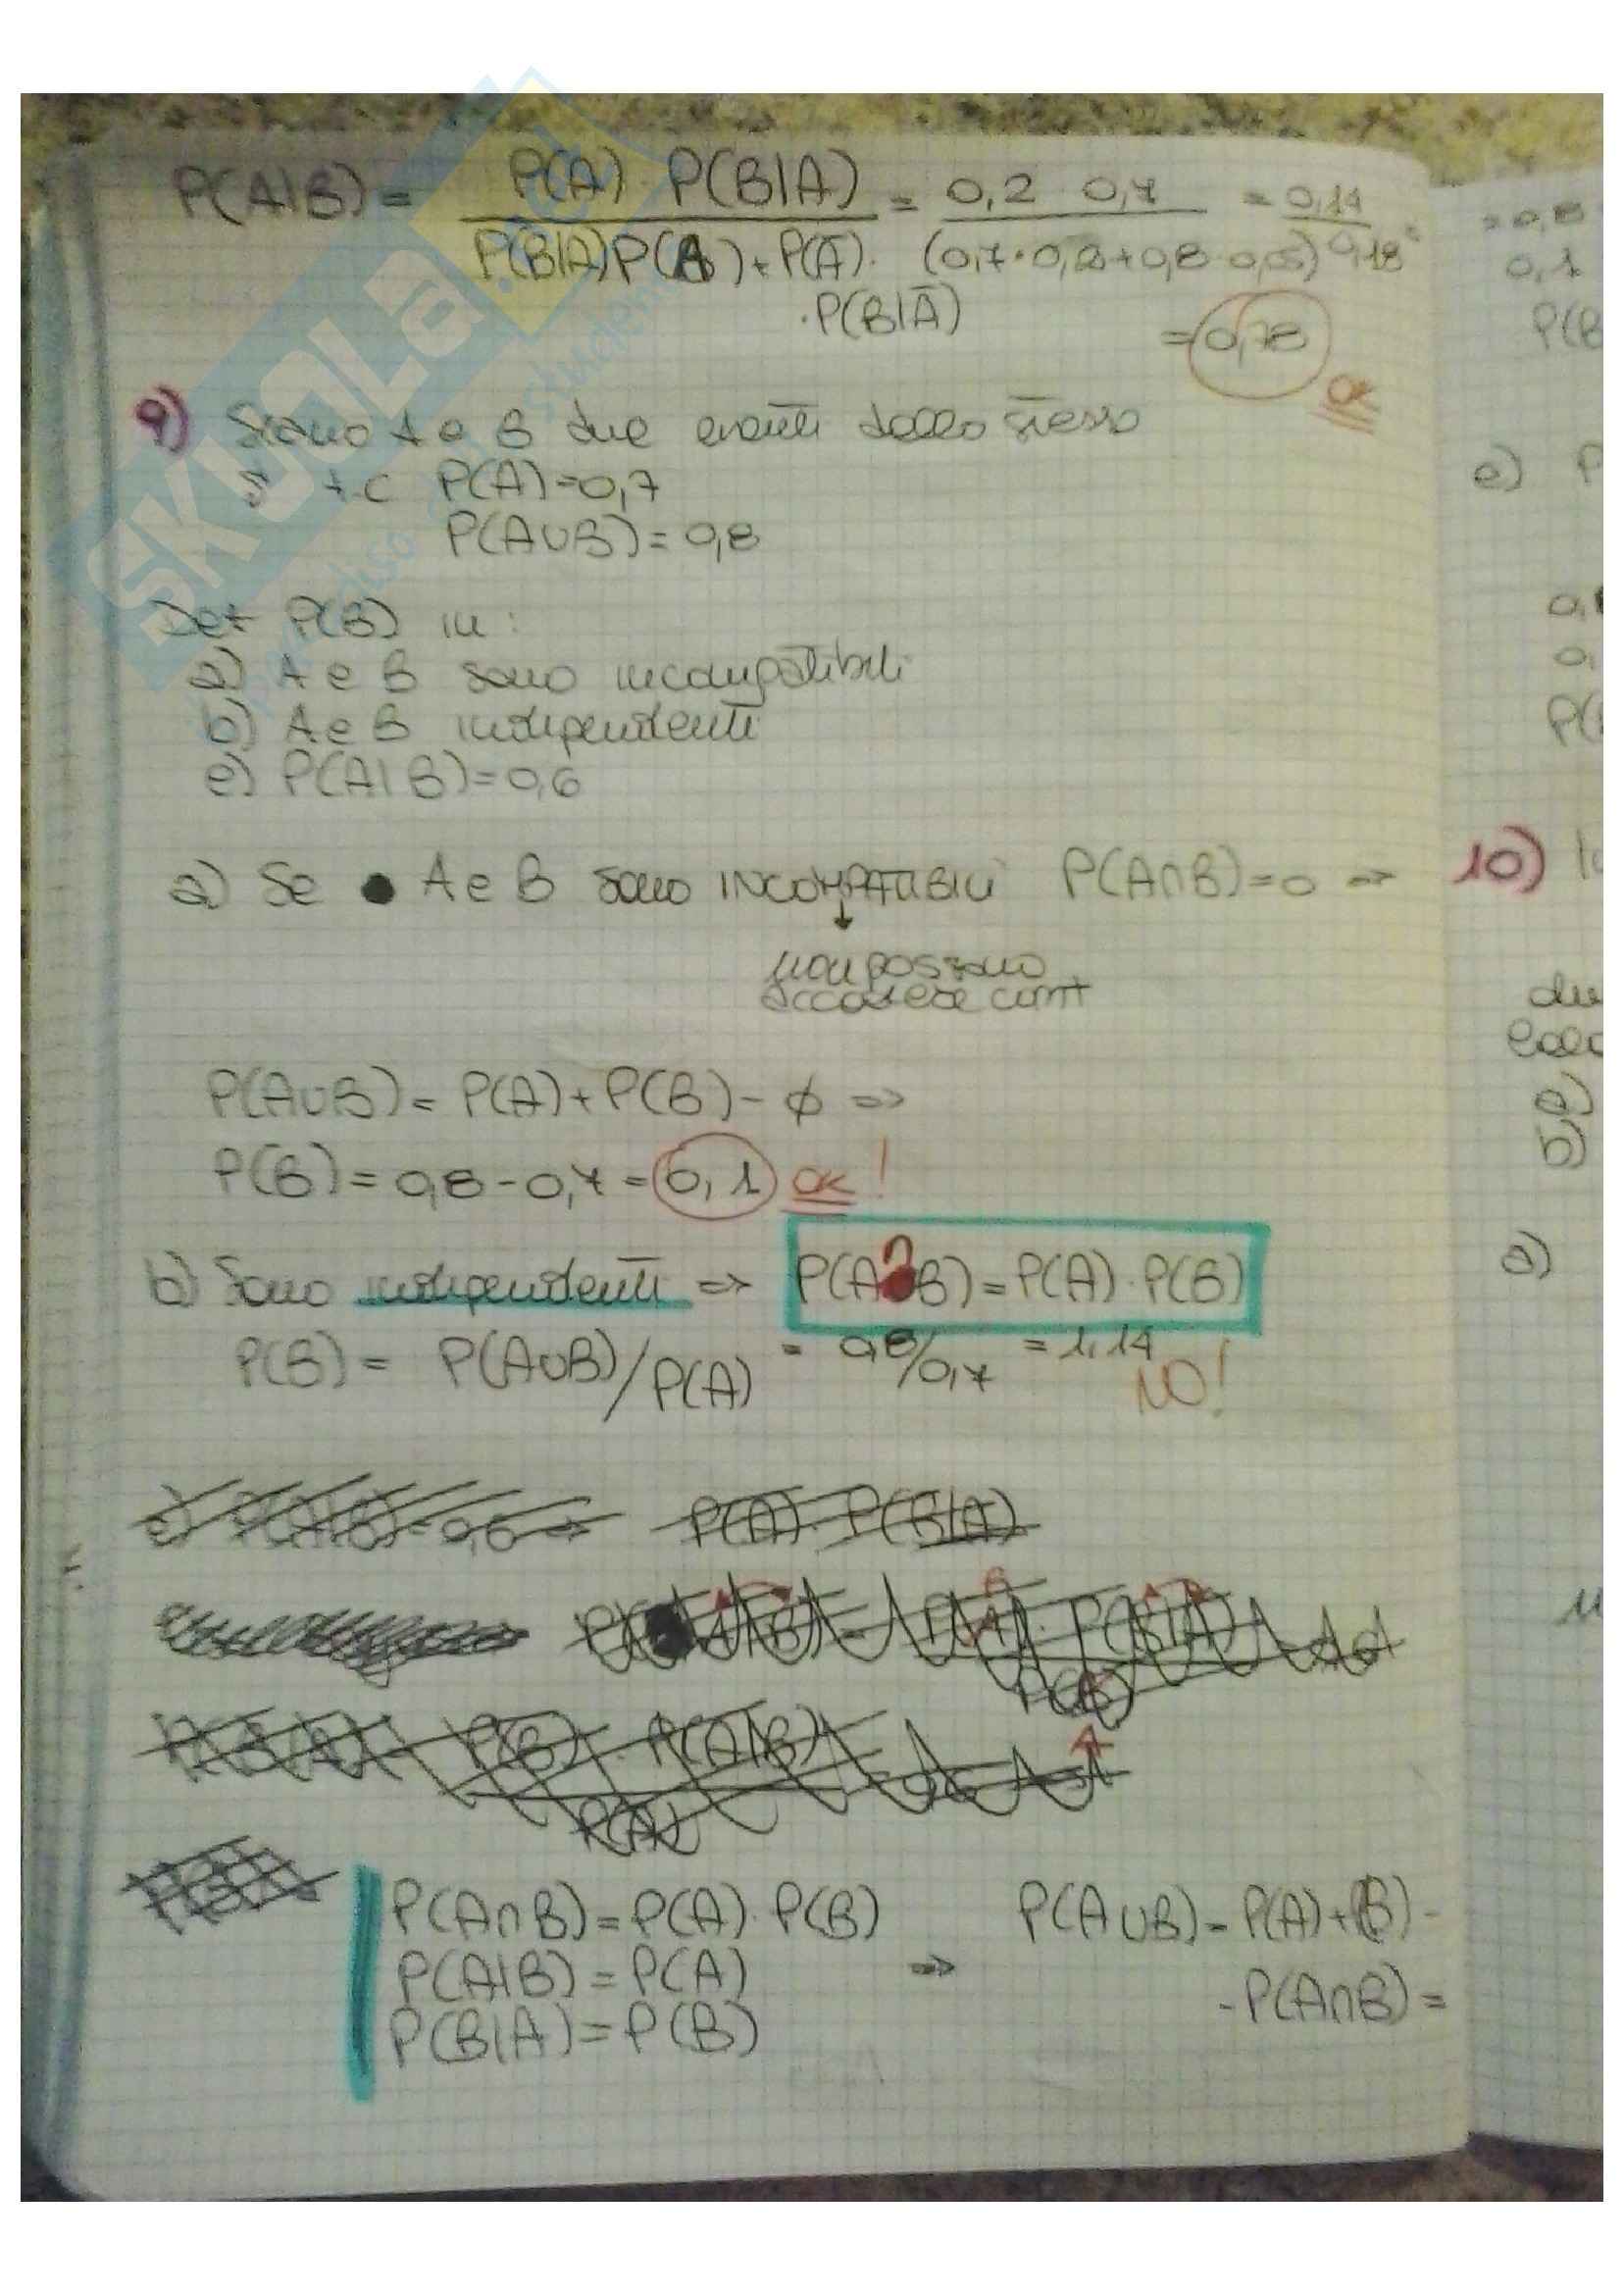 P(A|B) = P(A) · P(B|A) / P(B|A)P(A) + P(Ā) · P(B|Ā) = 0,2 0,7 / (0,7·0,2+0,8·0,05) = 0,14 / 0,18 = 0,78
OK
9) Siano A e B due eventi dello stesso
S t.c P(A)=0,7
P(A∪B)=0,8
Det P(B) in:
a) A e B sono incompatibili
b) A e B indipendenti
c) P(A|B)=0,6
a) Se A e B sono INCOMPATIBILI P(A∩B)=0 =>
↓
non possono
accadere cont
P(A∪B) = P(A)+P(B) - ϕ =>
P(B) = 0,8-0,7 = 0,1 OK!
b) Sono indipendenti => P(A∩B)=P(A)·P(B)
P(B) = P(A∪B)/P(A) = 0,8/0,7 = 1,14
NO!
c) P(A|B)=0,6 => P(A)·P(B|A)
P(A∩B)=P(A)·P(B) P(A∪B) = P(A)+P(B) -
P(A|B) = P(A) => - P(A∩B) =
P(B|A) = P(B)
= 0,8
0,1
P(B
e) P
10)
du
a)
b)
a)
SKUOLA.net